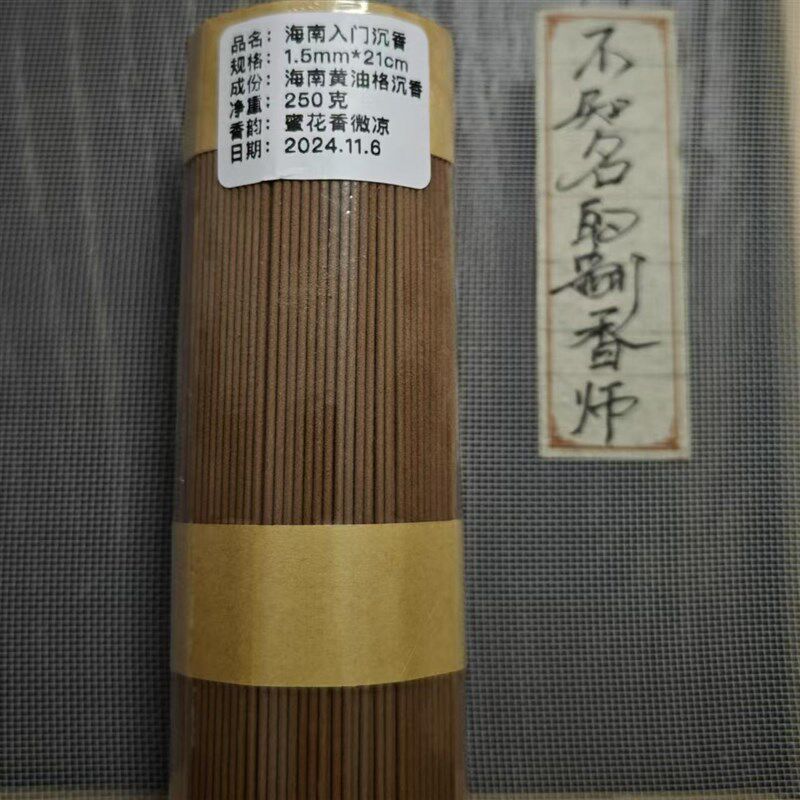 品名：海南入门沉香
规格：1.5mm*21cm
成份：海南黄油格沉香
净重：250克
香韵：蜜花香微凉
日期：2024.11.6
不知名的制香师